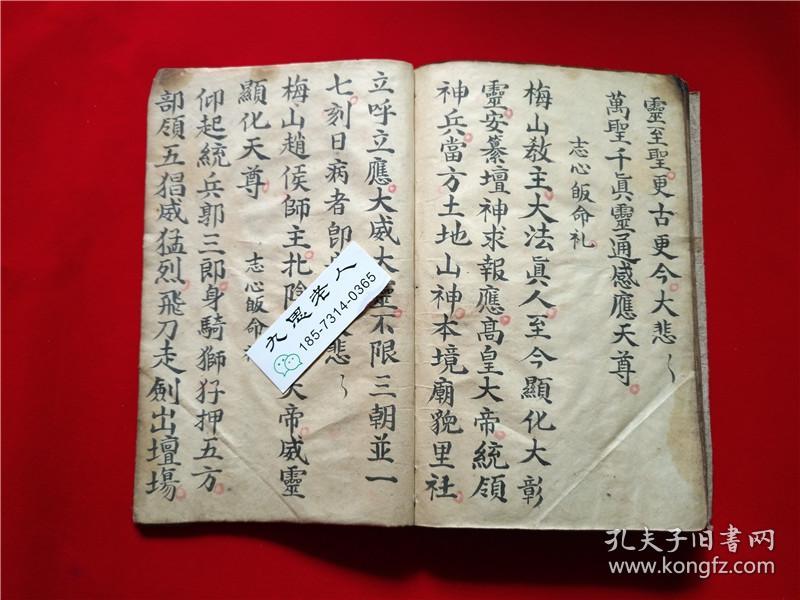 靈至聖更古更今大悲〻
萬聖千眞靈通感應天尊
志心皈命礼
梅山教主大法眞人至今顯化大彰
靈安纂壇神求報應高皇大帝統領
神兵當方土地山神本境廟貌里社
立呼立應大威大靈不限三朝並一
七刻日病者即 悲〻
梅山趙侯師主北陰 大帝威靈
顯化天尊
志心皈命
仰起統兵郭三郎身騎獅犴押五方
部領五猖威猛烈飛刀走劍出壇場
九思老人
185-7314-0365
孔夫子旧书网
www.kongfz.com